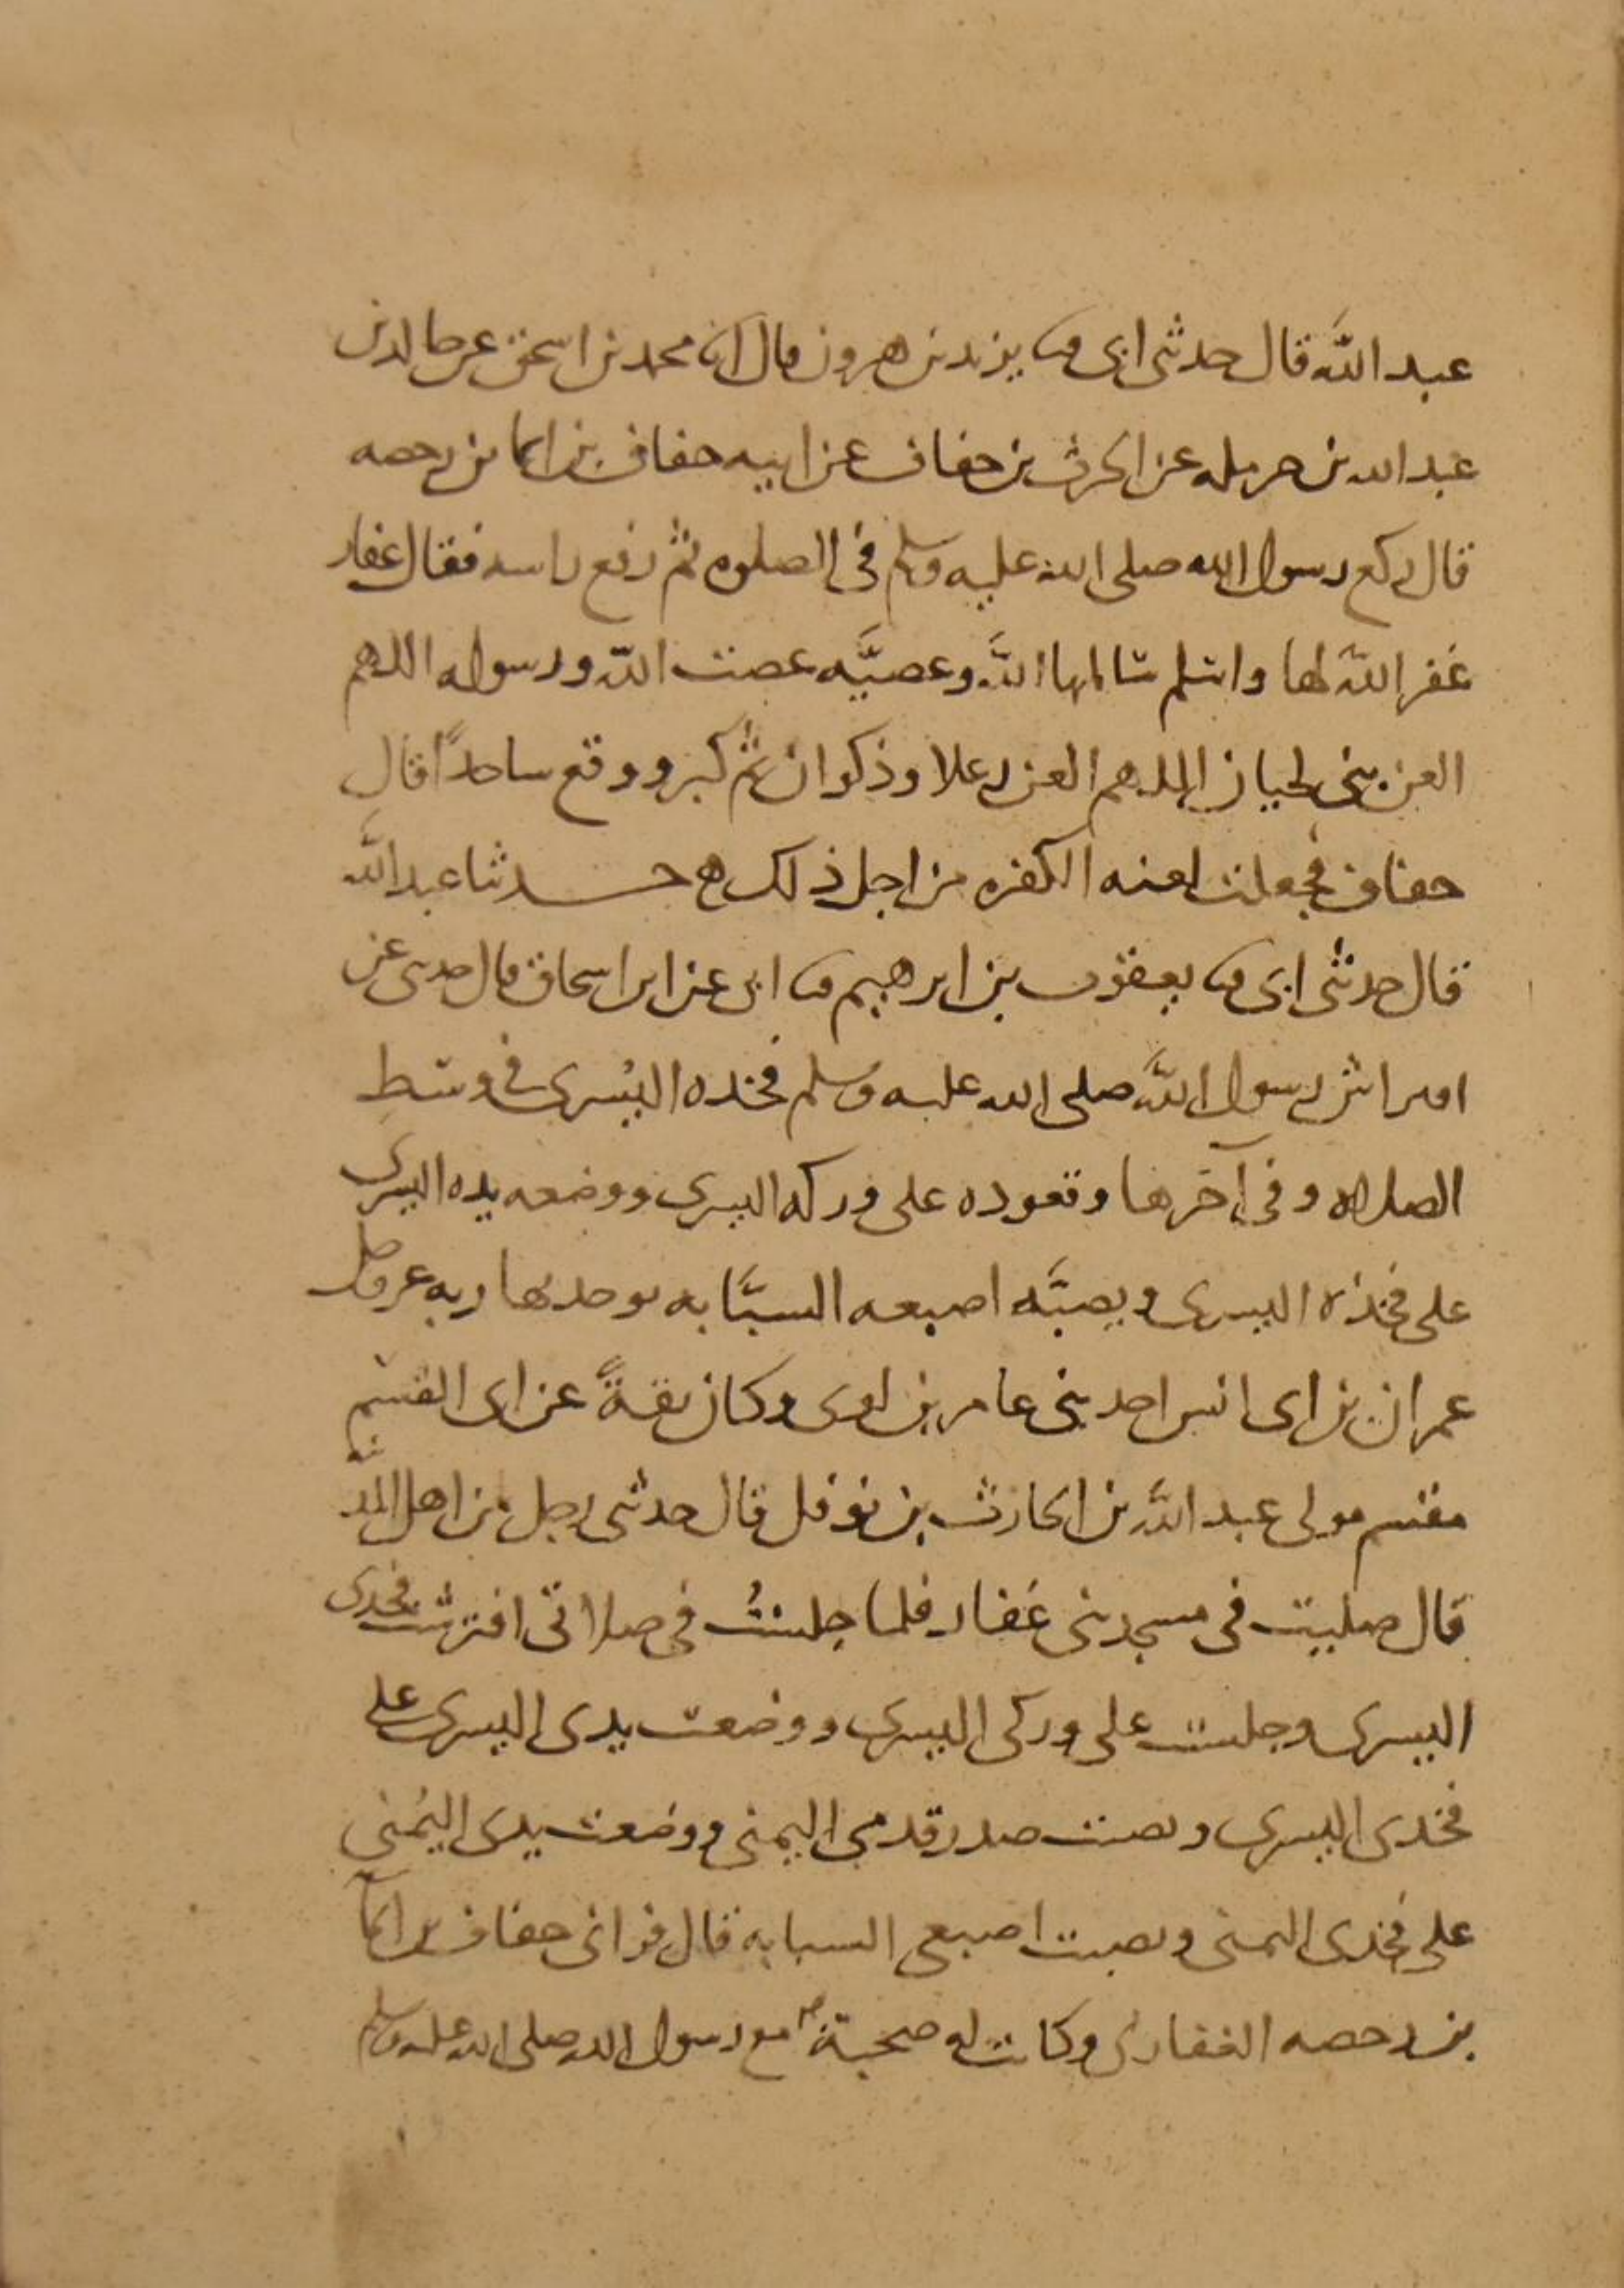 عبد الله قال حدثنى ابى ثنا يزيد بن هرون قال انا محمد بن اسحق عن خالد بن
عبد الله بن حرمله عن الحرث بن خفاف عن ابيه خفاف بن ايما بن رحضه
قال ركع رسول الله صلى الله عليه وسلم فى الصلوه ثم رفع راسه فقال غفار
غفر الله لها واسلم سالمها الله وعصيَّه عصت الله ورسوله اللهم
العن بنى لحيان اللهم العن رعلا وذكوان ثم كبر ووقع ساجدًا قال
خفاف فجعلت لعنه الكفره من اجل ذلك ه حدثنا عبد الله
قال حدثنى ابى ثنا يعقوب بن ابرهيم ثنا ابى عن ابن اسحاق قال حدثنى عن
افتراش رسول الله صلى الله عليه وسلم فخذه اليُسرى فى وسَط
الصلاه وفى آخرها وقعوده على وركه اليسرى ووضعه يده اليسرى
على فخذه اليسرى ونصبَه اصبعه السبَّابه يوحد بها ربه عز وجل
عمران بن ابى انس احد بنى عامر بن لوى وكان ثقةً عن ابى القسم
مقسم مولى عبد الله بن الحارث بن نوفل قال حدثنى رجل من اهل المدينه
قال صليت فى مسجد بنى غفار فلما جلستُ فى صلاتى افترشت فخذى
اليسرى وجلست على وركى اليسرى ووضعت يدى اليسرى على
فخذى اليسرى ونصبت صدر قدمى اليمنى ووضعت يدى اليُمنى
على فخذى اليمنى ونصبت اصبعى السبابه قال فرانى خفاف بن ايما
بن رحضه الغفارى وكانت له صحبة مع رسول الله صلى الله عليه وسلم